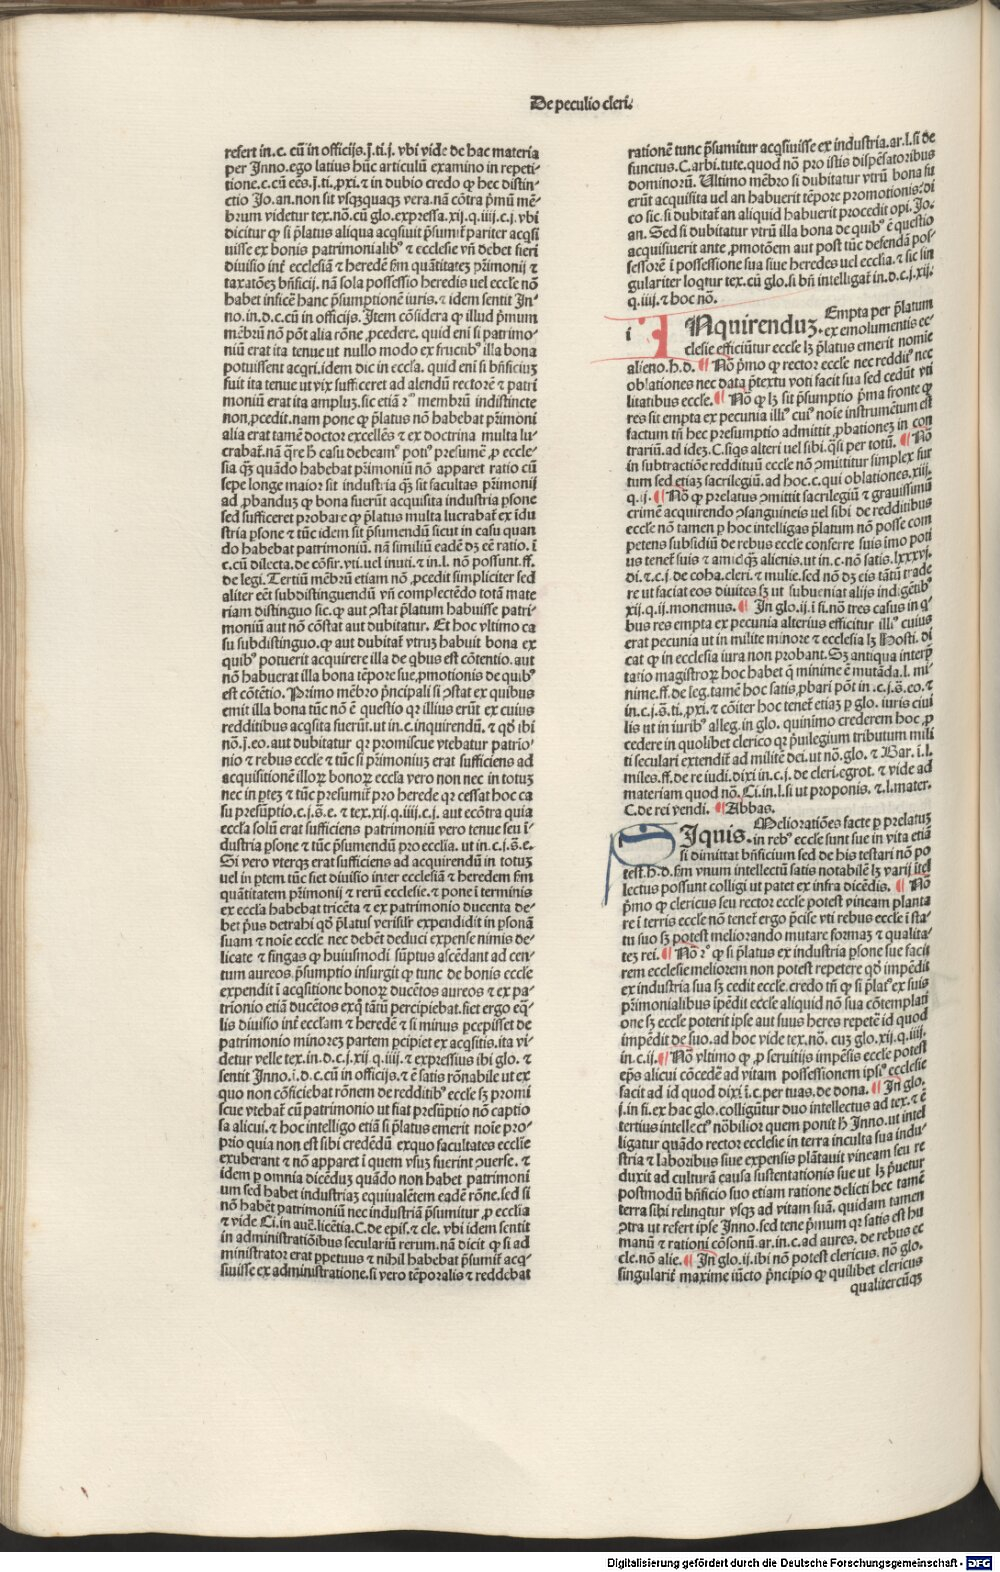 De peculio cleri.
refert in .c. cū in officijs. j. ti. j. vbi vide de hac materia
per Inno. ego latius hūc articulū examino in repeti-
tione .c. cū eēs. j. ti. ꝓxi. ⁊ in dubio credo ꝙ hec distin-
ctio Jo. an. non sit vsqꝫquaqꝫ vera. nā cōtra p̄mū mē-
brum videtur tex. nō. cū glo. expressa. xij. q. iiij. c. j. vbi
dicitur ꝙ si p̄latus aliqua acqsiuit p̄sumit᷑ pariter acqsi
uisse ex bonis patrimonialibꝰ ⁊ ecclesie vn̄ debet fieri
diuisio int᷑ ecclesiā ⁊ heredē ẜm quātitateꝫ pr̄imonij ⁊
taxatōeꝫ bn̄ficij. nā sola possessio heredis uel eccle nō
habet inficē hanc p̄sumptionē iuris. ⁊ idem sentit In-
no. in .d. c. cū in officijs. Item cōsidera ꝙ illud p̄mum
mēbrū nō pōt alia rōne ꝓcedere. quid eni si patrimo-
niū erat ita tenue ut nullo modo ex fructibꝰ illa bona
potuissent acqri. idem dic in eccſa. quid eni si bn̄ficiuꝫ
fuit ita tenue ut vix sufficeret ad alendū rectorē ⁊ patri
moniū erat ita ampluꝫ. sic etiā 2ᵐ membrū indistincte
non ꝓcedit. nam pone ꝙ p̄latus nō habebat pr̄imoni
alia erat tamē doctor excellēs ⁊ ex doctrina multa lu-
crabat᷑. nā q̄re h̄ casu debeamꝰ potiꝰ presumē ꝓ eccle-
sia qꝫ quādo habebat pr̄imoniū nō apparet ratio cū
sepe longe maior sit industria qꝫ sit facultas pr̄imonij
ad ꝓbanduꝫ ꝙ bona fuerūt acquisita industria ꝑsone
sed sufficeret probare ꝙ p̄latus multa lucrabat᷑ ex īdu
stria ꝑsone ⁊ tūc idem sit p̄sumendū sicut in casu quan
do habebat patrimoniū. nā similiū eadē dꝫ eē ratio. ī
c. cū dilecta. de cōfir. vti. uel inuti. ⁊ in .l. nō possunt. ff.
de legi. Tertiū mēbrū etiam nō ꝓcedit simpliciter sed
aliter eēt subdistinguendū vn̄ complectēdo totā mate
riam distinguo sic. ꝙ aut ꝯstat p̄latum habuisse patri-
moniū aut nō cōstat aut dubitatur. Et hoc vltimo ca
su subdistinguo. ꝙ aut dubitat᷑ vtruꝫ habuit bona ex
quibꝰ potuerit acquirere illa de qbus est cōtentio. aut
nō habuerat illa bona tēpore sue ꝓmotionis de quibꝰ
est cōtētio. Primo mēbro p̄ncipali si ꝯstat ex quibus
emit illa bona tūc nō ē questio qr illius erūt ex cuius
redditibus acqsita fuerūt. ut in .c. inquirendū. ⁊ qd̓ ibi
nō. j. eo. aut dubitatur qr promiscue vtebatur patrio-
nio ⁊ rebus eccle ⁊ tūc si pr̄imoniuꝫ erat sufficiens ad
acquisitionē illoꝝ bonoꝝ eccſa vero non nec in totuꝫ
nec in ꝑteꝫ ⁊ tūc presumit᷑ pro herede qr cessat hoc ca
su presūptio .c. j. s̄. e. ⁊ tex. xij. q. iiij. c. j. aut ecōtra quia
eccſa solū erat sufficiens patrimoniū vero tenue seu ī-
dustria ꝑsone ⁊ tūc p̄sumendū pro ecclia. ut in .c. j. s̄. e.
Si vero vterqꝫ erat sufficiens ad acquirendū in totuꝫ
uel in ꝑtem tūc fiet diuisio inter ecclesiā ⁊ heredem ẜm
quātitatem pr̄imonij ⁊ rerū ecclesie. ⁊ pone ī terminis
ex eccſa habebat tricēta ⁊ ex patrimonio ducenta de-
bet p̄us detrahi qd̓ p̄latus verisil᷑r expendidit in ꝑsonā
suam ⁊ noīe eccle nec debēt deduci expense nimis de-
licate ⁊ fingas ꝙ huiusmodi sūptus ascēdant ad cen-
tum aureos p̄sumptio insurgit ꝙ tunc de bonis eccle
expendit ī acqsitione bonoꝝ ducētos aureos ⁊ ex pa-
trionio etiā ducētos exq̄ tātū percipiebat. fiet ergo eq̄-
lis diuisio int᷑ eccſam ⁊ heredē ⁊ si minus ꝑcepisset de
patrimonio minoreꝫ partem ꝑcipiet ex acqsitis. ita vi-
detur velle tex. in .d. c. j. xij. q. iiij. ⁊ expressius ibi glo. ⁊
sentit Inno. ī .d. c. cū in officijs. ⁊ ē satis rōnabile ut ex
quo non cōficiebat rōnem de redditibꝰ eccle sꝫ promi
scue vtebat᷑ cū patrimonio ut fiat presūptio nō captio
sa alicui. ⁊ hoc intelligo etiā si p̄latus emerit noīe pro-
prio quia non est sibi credēdū exquo facultates ecclīe
exuberant ⁊ nō apparet ī quem vsuꝫ fuerint ꝯuerse. ⁊
idem ꝑ omnia dicēduꝫ quādo non habet patrimoni
um sed habet industriaꝫ equiualētem eadē rōne. sed si
nō habēt patrimoniū nec industriā p̄sumitur ꝓ ecclia
⁊ vide Ci. in auc̄. licētia. C. de epis. ⁊ cle. vbi idem sentit
in administratiōibus seculariū rerum. nā dicit ꝙ si ad
ministrator erat ꝑpetuus ⁊ nihil habebat p̄sumit᷑ acq-
siuisse ex administratione. si vero tēporalis ⁊ reddebat
rationē tunc p̄sumitur acqsiuisse ex industria. ar. l. si de
functus. C. arbi. tute. quod nō pro istis dispēsatoribus
dominorū. Ultimo mēbro si dubitatur vtrū bona fu
erūt acquisita uel an habuerit tēpore promotionis. di
co sic. si dubitat᷑ an aliquid habuerit procedit opi. Jo.
an. Sed si dubitatur vtrū illa bona de quibꝰ ē questio
acquisiuerit ante ꝓmotōem aut post tūc defendā pos-
sessorē ī possessione sua siue heredes uel ecclia. ⁊ sic sin
gulariter loqtur tex. cū glo. si bn̄ intelligat᷑ in .d. c. j. xij.
q. iiij. ⁊ hoc nō.
i INquirenduꝫ. Empta per p̄latum
ex emolumentis ec-
clesie efficiūtur eccle lꝫ p̄latus emerit nomīe
alieno. h. d. ¶ Nō p̄mo ꝙ rector eccle nec redditꝰ nec
oblationes nec data p̄textu voti facit sua sed cedūt vti
litatibus eccle. ¶ Nō ꝙ lꝫ sit p̄sumptio p̄ma fronte ꝙ
res sit empta ex pecunia illiꝰ cuiꝰ noīe instrumētum est
factum tn̄ hec presumptio admittit ꝓbationeꝫ in con
trariū. ad ideꝫ. C. siqs alteri uel sibi. q̄si per totū. ¶ Nō
in subtractiōe reddituū eccle nō ꝯmittitur simplex fur
tum sed etiaꝫ sacrilegiū. ad hoc .c. qui oblationes. xiij.
q. ij. ¶ Nō ꝙ prelatus ꝯmittit sacrilegiū ⁊ grauissimū
crimē acquirendo ꝯsanguineis uel sibi de redditibus
eccle nō tamen ꝑ hoc intelligas p̄latum nō posse com
petens subsidiū de rebus eccle conferre suis imo poti
us tenet᷑ suis ⁊ amicis qꝫ alienis. ut in .c. nō satis. lxxxvj.
di. ⁊ .c. j. de coha. cleri. ⁊ mulie. sed nō dꝫ eis tātū trade
re ut faciat eos diuites sꝫ ut subueniat alijs indigētibꝰ
xij. q. ij. monemus. ¶ In glo. ij. ī fi. nō tres casus in q-
bus res empta ex pecunia alterius efficitur illiꝰ cuius
erat pecunia ut in milite minore ⁊ ecclesia lꝫ Hosti. di
cat ꝙ in ecclesia iura non probant. Sꝫ antiqua interp̄
tatio magistroꝝ hoc habet q̄ minime ē mutāda. l. mi-
nime. ff. de leg. tamē hoc satis ꝓbari pōt in .c. j. s̄. eo. ⁊
in .c. j. s̄. ti. ꝓxi. ⁊ cōiter hoc tenet᷑ etiaꝫ ꝑ glo. iuris ciui
lis ut in iuribꝰ alleg. in glo. quinimo crederem hoc ꝓ
cedere in quolibet clerico qr p̄uilegium tributum mili
ti seculari extendit᷑ ad militē dei. ut nō. glo. ⁊ Bar. ī .l.
miles. ff. de re iudi. dixi in .c. j. de cleri. egrot. ⁊ vide ad
materiam quod nō. Ci. in .l. si ut proponis. ⁊ .l. mater.
C. de rei vendi. ¶ Abbas.
SIquis. Melioratiōes facte ꝑ prelatuꝫ
in rebꝰ eccle sunt sue in vita etiā
si dimittat bn̄ficium sed de his testari nō po
test. h. d. ẜm vnum intellectū satis notabilē lꝫ varij ītel
lectus possunt colligi ut patet ex infra dicēdis. ¶ Nō
p̄mo ꝙ clericus seu rector eccle potest vineam planta
re ī terris eccle nō tenet᷑ ergo p̄cise vti rebus eccle ī sta
tu suo sꝫ potest meliorando mutare formaꝫ ⁊ qualita-
teꝫ rei. ¶ Nō 2ꝰ ꝙ si p̄latus ex industria ꝑsone sue facit
rem ecclesie meliorem non potest repetere qd̓ impēdit
ex industria sua sꝫ cedit eccle. credo tn̄ ꝙ si p̄latꝰ ex suis
pr̄imonialibus īpēdit eccle aliquid nō sua cōtemplati
one sꝫ eccle poterit ipse aut suus heres repetē id quod
impēdit de suo. ad hoc vide tex. nō. cuꝫ glo. xij. q. iiij.
in .c. ij. ¶ Nō vltimo ꝙ ꝓ seruitijs impēsis eccle potest
ep̄s alicui cōcedē ad vitam possessionem ipsiꝰ ecclesie
facit ad id quod dixi ī .c. per tuas. de dona. ¶ In glo.
j. in fi. ex hac glo. colligūtur duo intellectus ad tex. ⁊ ē
tertius intellectꝰ nōbilior quem ponit h̄ Inno. ut intel
ligatur quādo rector ecclesie in terra inculta sua indu-
stria ⁊ laboribus siue expensis plātauit vineam seu re
duxit ad culturā causa sustentationis sue ut lꝫ p̄uetur
postmodū bn̄ficio suo etiam ratione delicti hec tamē
terra sibi relinqtur vsqꝫ ad vitam suā. quidam tamen
ꝯtra ut refert ipse Inno. sed tene p̄mum qr satis est hu
manū ⁊ rationi cōsonū. ar. in .c. ad aures. de rebus ec
cle. nō alie. ¶ In glo. ij. ibi nō potest clericus. nō glo.
singularit᷑ maxime iūcto p̄ncipio ꝙ quilibet clericus
qualitercūqꝫ
Digitalisierung gefördert durch die Deutsche Forschungsgemeinschaft - DFG